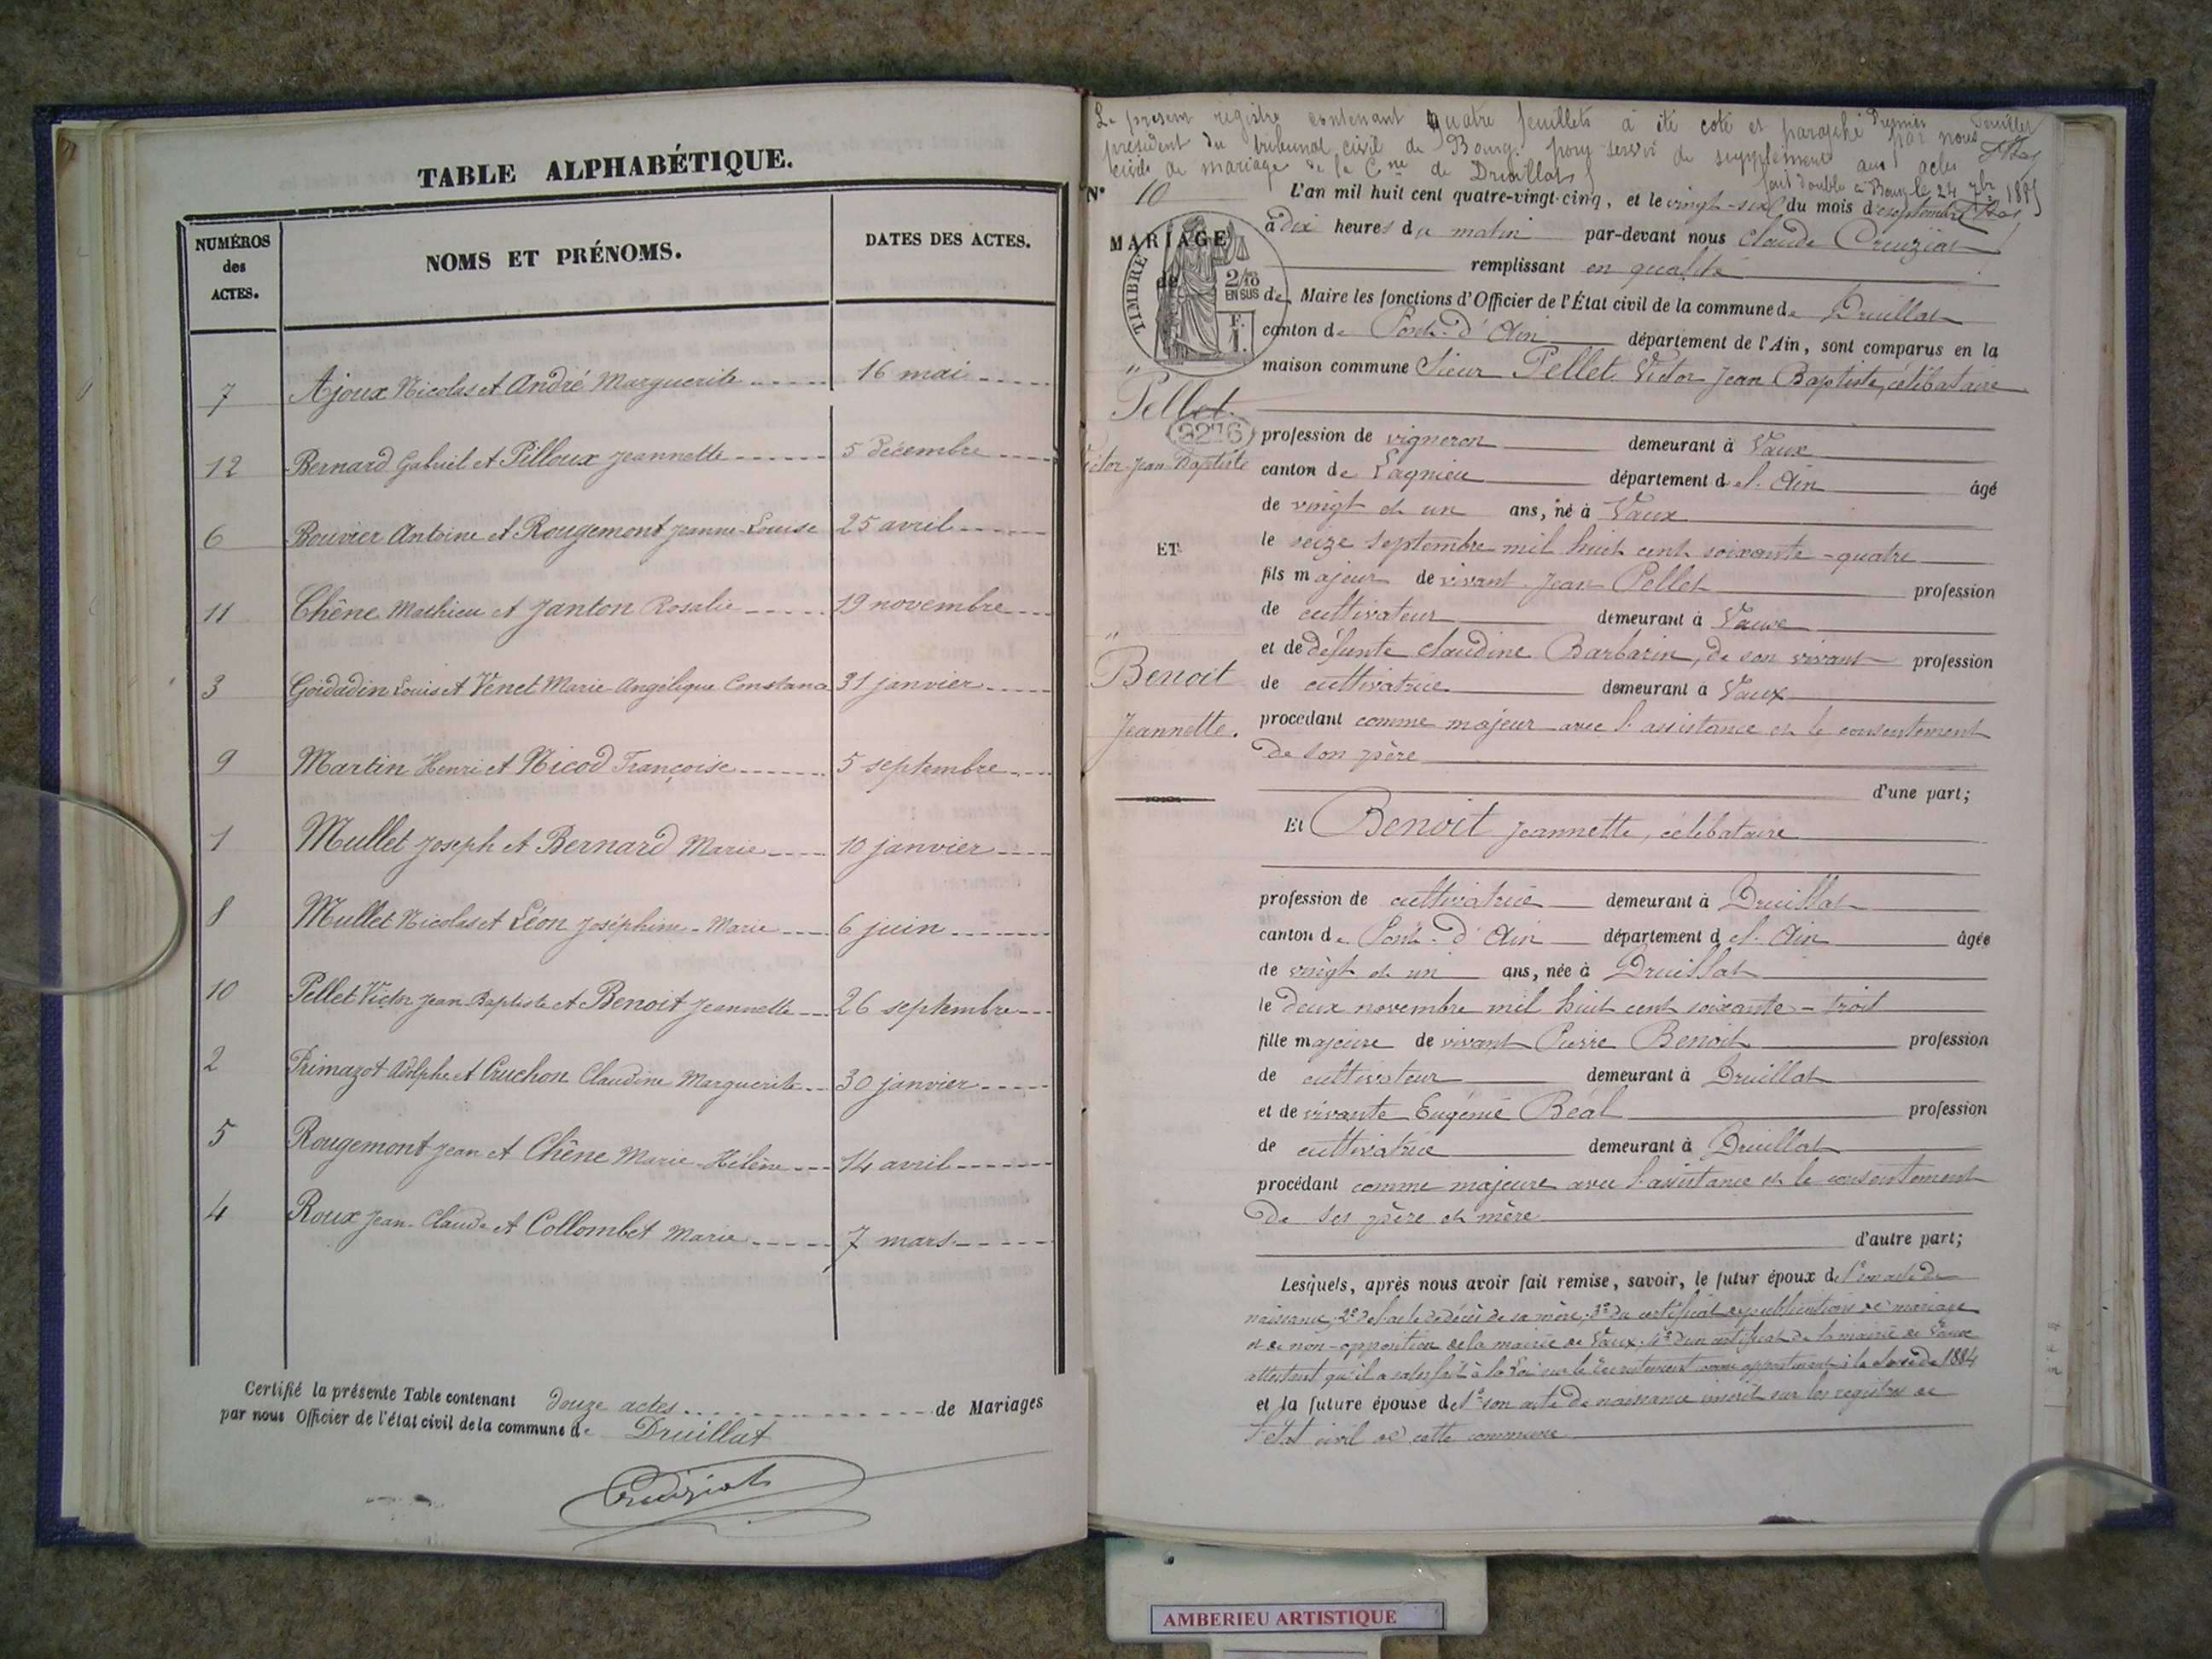 TABLE ALPHABÉTIQUE.
NUMÉROS des ACTES. NOMS ET PRÉNOMS. DATES DES ACTES.
7 Ajoux Nicolas et André Marguerite 16 mai
12 Bernard Gabriel et Pilloux Jeannette 5 décembre
6 Bouvier Antoine et Rougemont Jeanne-Louise 25 avril
11 Chêne Mathieu et Janton Rosalie 19 novembre
3 Goidadin Louis et Venet Marie Angélique Constance 31 janvier
9 Martin Henri et Nicod Françoise 5 septembre
1 Mullet Joseph et Bernard Marie 10 janvier
8 Mullet Nicolas et Léon Joséphine-Marie 6 juin
10 Pellet Victor Jean-Baptiste et Benoit Jeannette 26 septembre
2 Primazot Adolphe et Cruchon Claudine Marguerite 30 janvier
5 Rougemont Jean et Chêne Marie-Hélène 14 avril
4 Roux Jean-Claude et Collombet Marie 7 mars
Certifié la présente Table contenant douze actes de Mariages
par nous Officier de l'état civil de la commune de Druillat
Creuziat
Le présent registre contenant quatre feuillets a été coté et paraphé par nous
Premier feuillet
président du tribunal civil de Bourg pour servir de supplément aux actes
civils de mariage de la Cne de Druillat
fait double à Bourg le 24 7bre 1885
N° 10
MARIAGE
de
TIMBRE
2/10
EN SUS
F.
1.
Pellet
9276
Victor-Jean-Baptiste
ET
Benoit
Jeannette.
L'an mil huit cent quatre-vingt-cinq, et le vingt-six du mois de septembre
à dix heures du matin par-devant nous Claude Creuziat
remplissant en qualité
de Maire les fonctions d'Officier de l'État civil de la commune de Druillat
canton de Pont-d'Ain département de l'Ain, sont comparus en la
maison commune Sieur Pellet Victor Jean Baptiste, célibataire
profession de vigneron demeurant à Vaux
canton de Lagnieu département de l'Ain âgé
de vingt et un ans, né à Vaux
le seize septembre mil huit cent soixante-quatre
fils majeur de vivant Jean Pellet profession
de cultivateur demeurant à Vaux
et de défunte Claudine Barbarin, de son vivant profession
de cultivatrice demeurant à Vaux
procédant comme majeur avec l'assistance et le consentement
de son père
d'une part;
Et Benoit Jeannette, célibataire
profession de cultivatrice demeurant à Druillat
canton de Pont-d'Ain département de l'Ain âgée
de vingt et un ans, née à Druillat
le deux novembre mil huit cent soixante-trois
fille majeure de vivant Pierre Benoit profession
de cultivateur demeurant à Druillat
et de vivante Eugénie Béal profession
de cultivatrice demeurant à Druillat
procédant comme majeure avec l'assistance et le consentement
de ses père et mère
d'autre part;
Lesquels, après nous avoir fait remise, savoir, le futur époux de 1° son acte de
naissance; 2° de l'acte de décès de sa mère; 3° du certificat de publications de mariage
et de non-opposition de la mairie de Vaux. 4° d'un certificat de la mairie de Vaux
attestant qu'il a satisfait à la Loi sur le recrutement comme appartenant à la classe de 1884
et la future épouse de 1° son acte de naissance inscrit sur les registres de
l'état civil de cette commune
AMBERIEU ARTISTIQUE